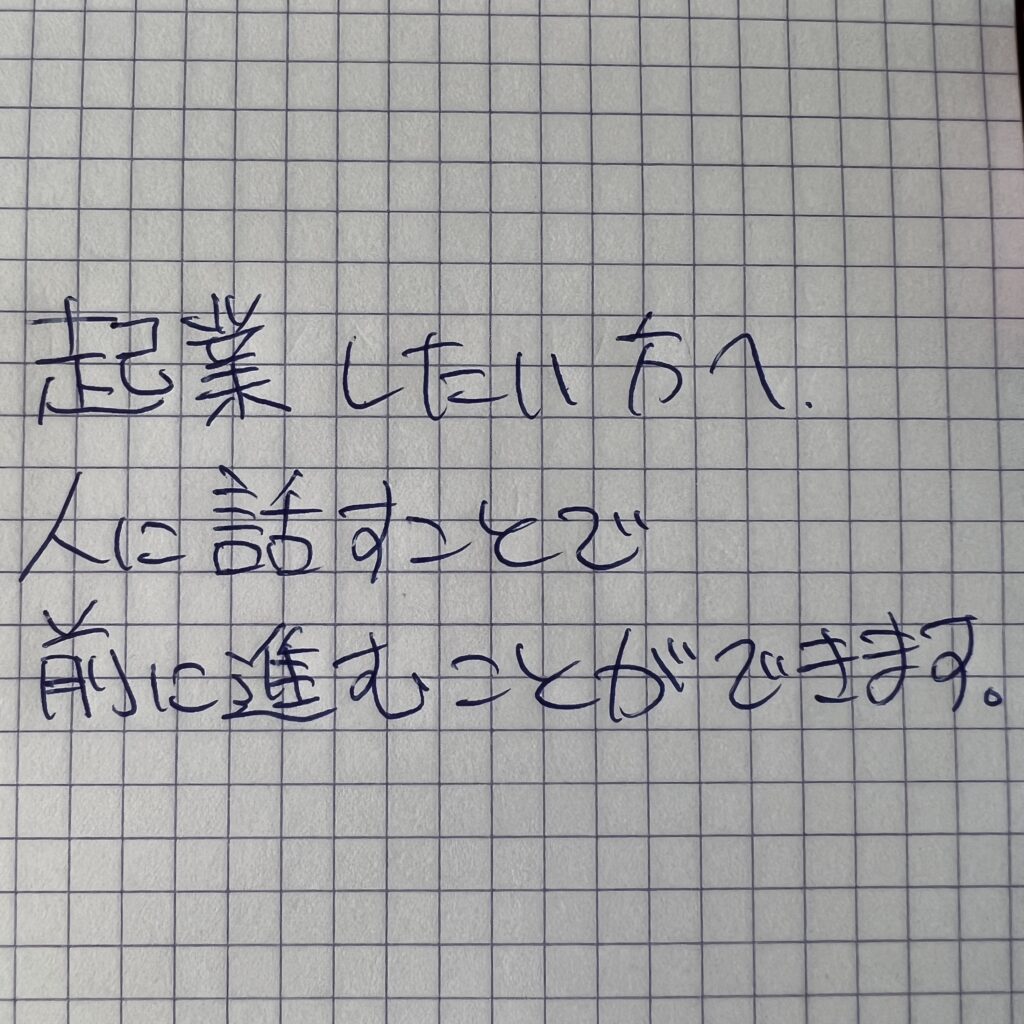 起業したい方へ.
人に話すことで
前に進むことができます。